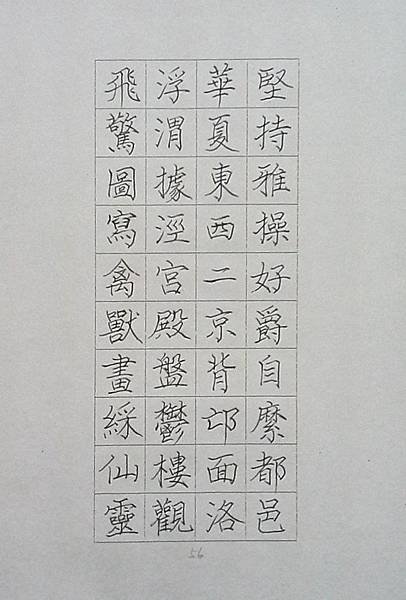 堅持雅操好爵自縻都邑
華夏東西二京背邙面洛
浮渭據涇宮殿盤鬱樓觀
飛驚圖寫禽獸畫綵仙靈
56